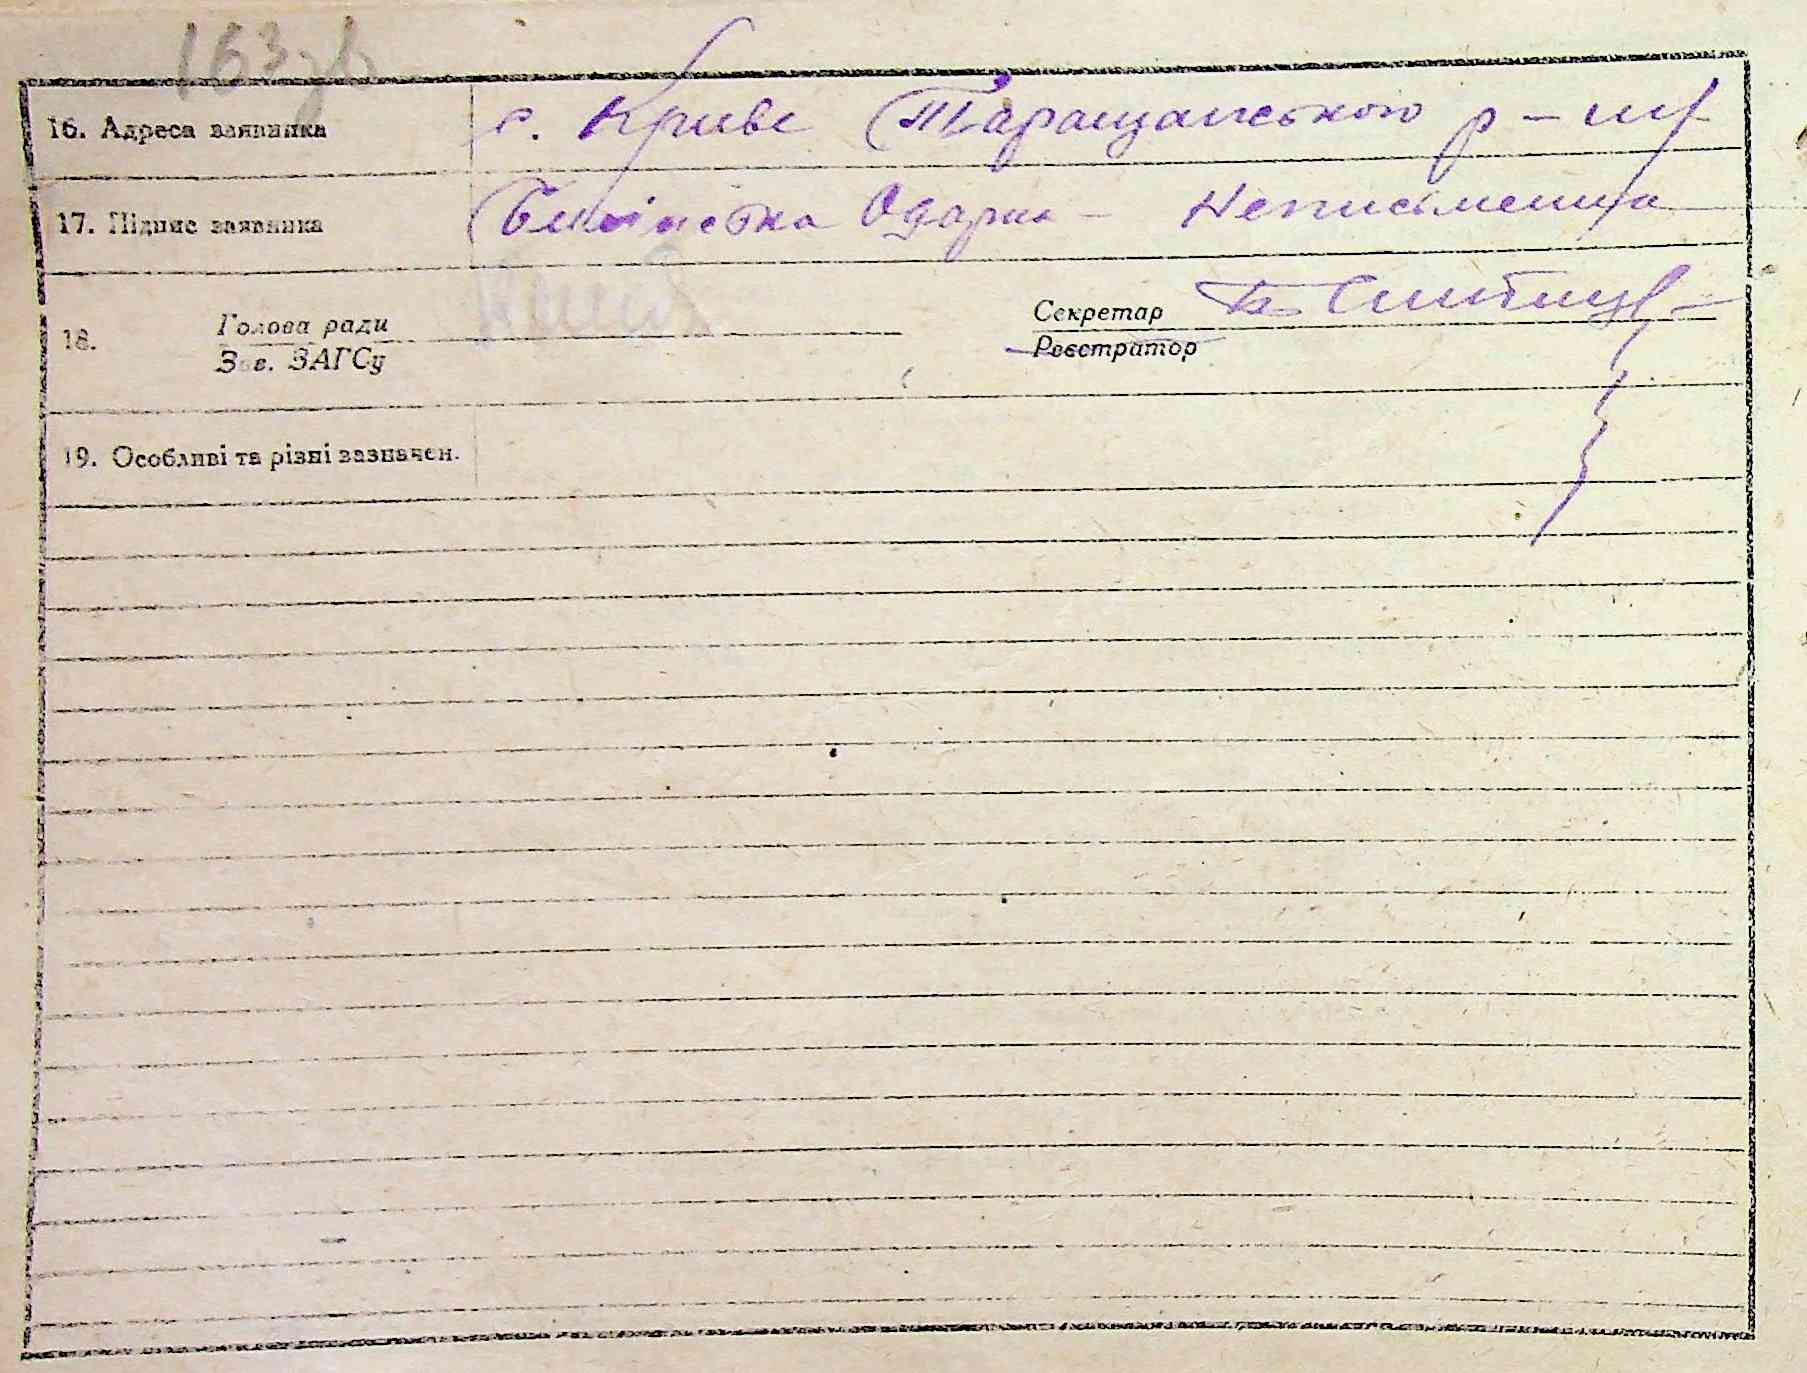 163зв
16. Адреса заявника с. Криве Таращанського р-ну
17. Підпис заявника Одарка - Неписьменна
18. Голова ради Секретар
Зав. ЗАГСу Реєстратор
19. Особливі та різні зазначен.